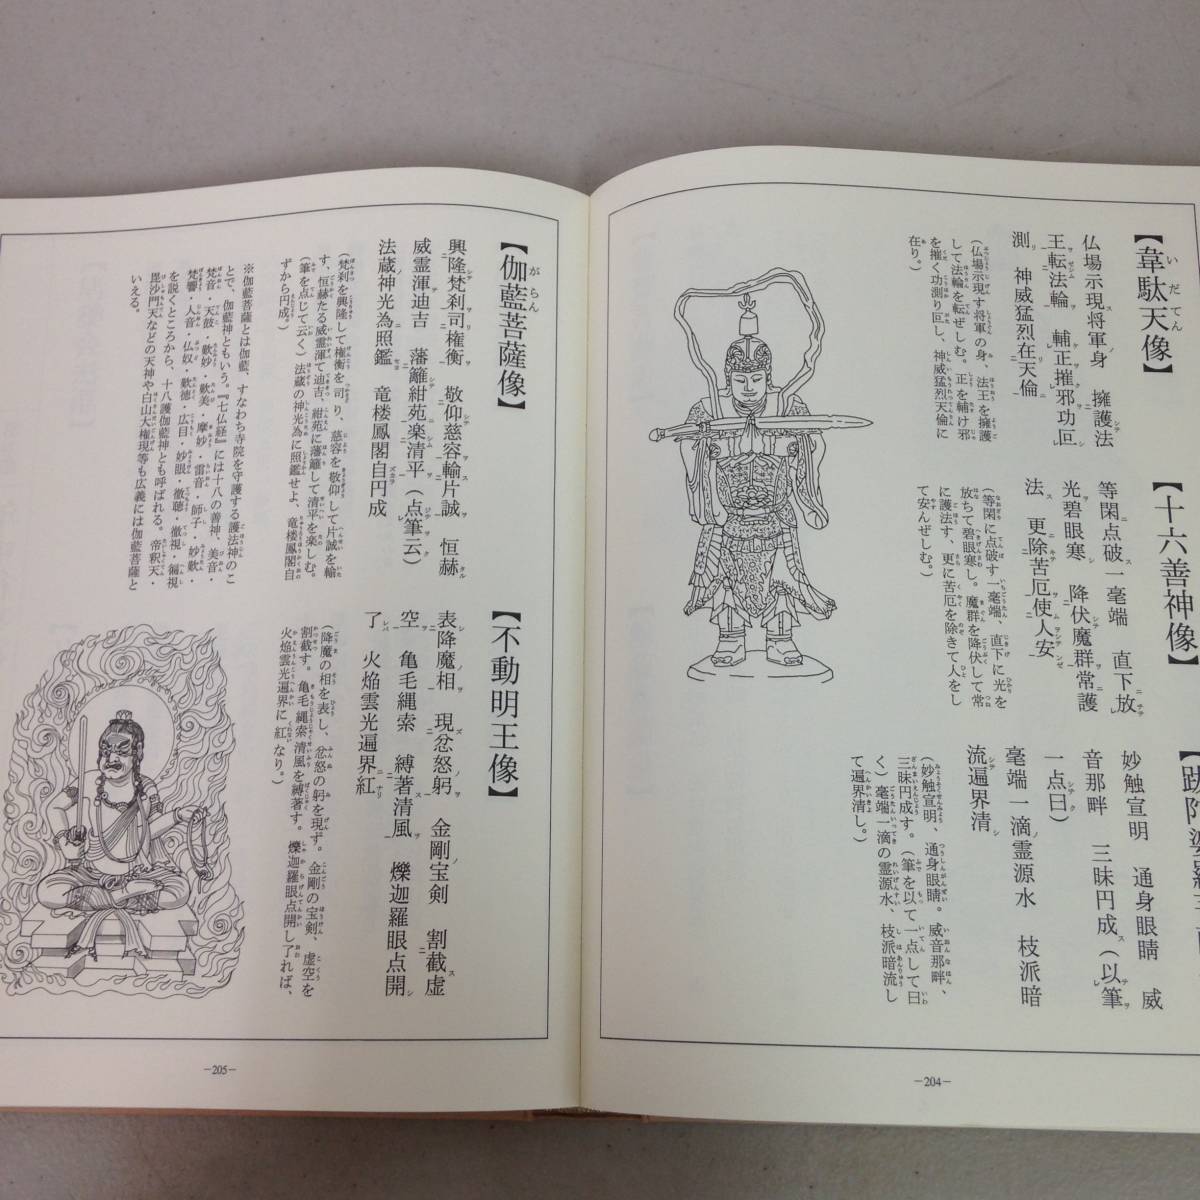 【韋駄天像】
仏場示現将軍身　擁護法
王転法輪　輔正摧邪功叵
測　神威猛烈在天倫
（仏場示現す将軍の身、法王を擁護
して法輪を転ぜしむ。正を輔け邪
を摧く功測り叵し、神威猛烈天倫に
在り。）
【十六善神像】
等閑点破一毫端　直下放
光碧眼寒　降伏魔群常護
法　更除苦厄使人安
（等閑に点破す一毫端、直下に光を
放ちて碧眼寒し。魔群を降伏して常
に護法す、更に苦厄を除きて人をし
て安んぜしむ。）
妙触宣明　通身眼睛　威
音那畔　三昧円成（以筆
一点曰）
毫端一滴霊源水　枝派暗
流遍界清
（妙触宣明、通身眼睛。威音那畔、
三昧円成す。（筆を以て一点して曰
く）毫端一滴の霊源水、枝派暗流し
て遍界清し。）
－204－
【伽藍菩薩像】
興隆梵刹司権衡　敬仰慈容輸片誠　恒赫
威霊渾迪吉　藩籬紺苑楽清平（点筆云）
法蔵神光為照鑑　竜楼鳳閣自円成
（梵刹を興隆して権衡を司り、慈容を敬仰して片誠を輸
す、恒赫たる威霊渾て迪吉、紺苑に藩籬して清平を楽しむ。
（筆を点じて云く）法蔵の神光為に照鑑せよ、竜楼鳳閣自
ずから円成。）
※伽藍菩薩とは伽藍、すなわち寺院を守護する護法神のこ
とで、伽藍神ともいう。『七仏経』には十八の善神、美音・
梵音・天鼓・歎妙・歎美・摩妙・雷音・師子・妙歎・
梵響・人音・仏奴・歎徳・広目・妙眼・徹聴・徹視・徧視
を説くところから、十八護伽藍神とも呼ばれる。帝釈天・
毘沙門天などの天神や白山大権現等も広義には伽藍菩薩と
いえる。
【不動明王像】
表降魔相　現忿怒躬　金剛宝剣　割截虚
空　亀毛縄索　縛著清風　爍迦羅眼点開
了　火焔雲光遍界紅
（降魔の相を表し、忿怒の躬を現ず。金剛の宝剣、虚空を
割截す。亀毛縄索清風を縛著す。爍迦羅眼点開し了れば、
火焔雲光遍界に紅なり。）
－205－